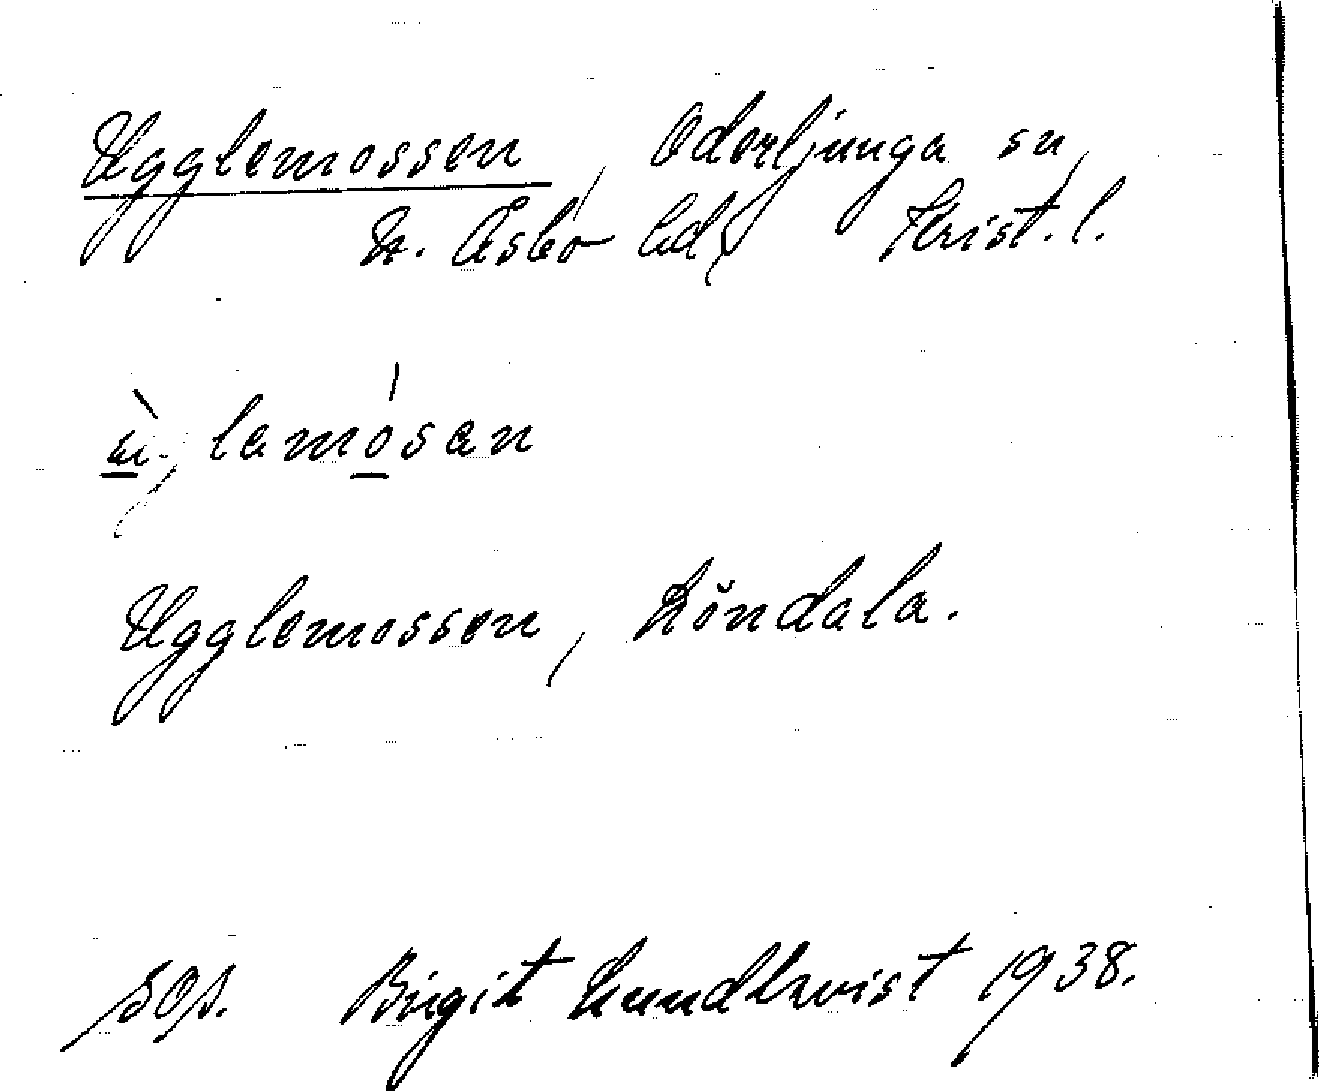 Ugglemossen, Oderljunga sn,
N. Åsbo hd, Krist. l.
lamosan
Ugglemossen, Röndala.
sop. Birgit Lundkvist 1938.